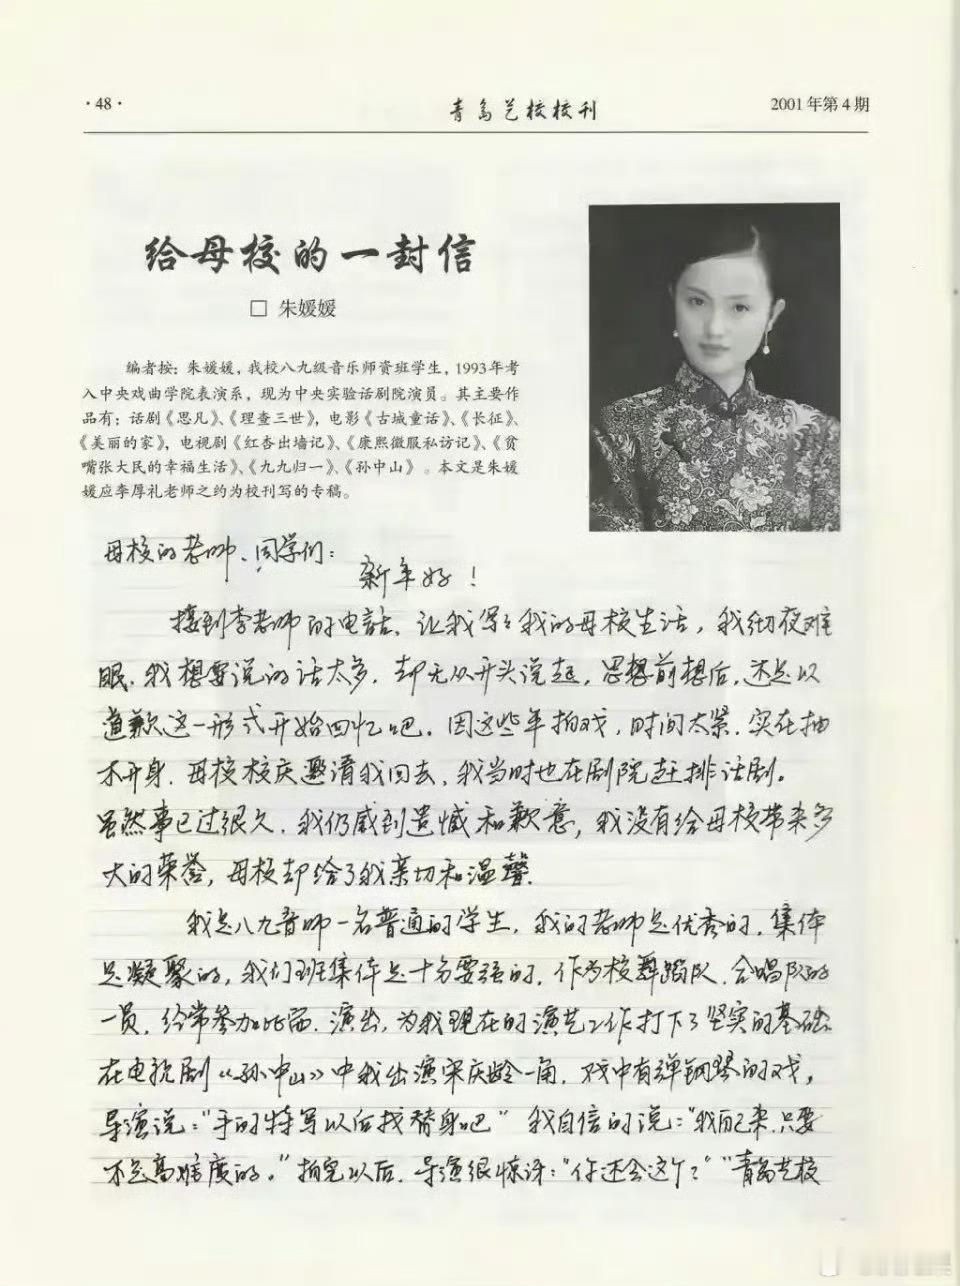 ·48·
青岛艺校校刊
2001年第4期
给母校的一封信
□ 朱媛媛
编者按：朱媛媛，我校八九级音乐师资班学生，1993年考
入中央戏曲学院表演系，现为中央实验话剧院演员。其主要作
品有：话剧《思凡》、《理查三世》，电影《古城童话》、《长征》、
《美丽的家》，电视剧《红杏出墙记》、《康熙微服私访记》、《贫
嘴张大民的幸福生活》、《九九归一》、《孙中山》。本文是朱媛
媛应李厚礼老师之约为校刊写的专稿。
母校的老师、同学们：
新年好！
接到李老师的电話，让我写写我的母校生活，我彻夜难
眠，我想要说的话太多，却无从开头说起，思想前想后，还是以
道歉这一形式开始回忆吧。因这些年拍戏，时间太紧，实在抽
不开身，母校校庆邀请我回去，我当时也在剧院赶排话剧。
虽然事已过很久，我仍感到遗憾和歉意，我没有给母校带来多
大的荣誉，母校却给了我亲切和温馨。
我是八九音师一名普通的学生，我的老师是优秀的，集体
是凝聚的，我们班集体是十分要强的，作为校舞蹈队、合唱队的
一员，经常参加比赛、演出，为我现在的演艺工作打下了坚实的基础。
在电视剧《孙中山》中我出演宋庆龄一角，戏中有弹钢琴的戏，
导演说：“手的特写以后找替身吧”我自信的说：“我自己来，只要
不是高难度的。”拍完以后，导演很惊讶：“你还会这个？”“青岛艺校